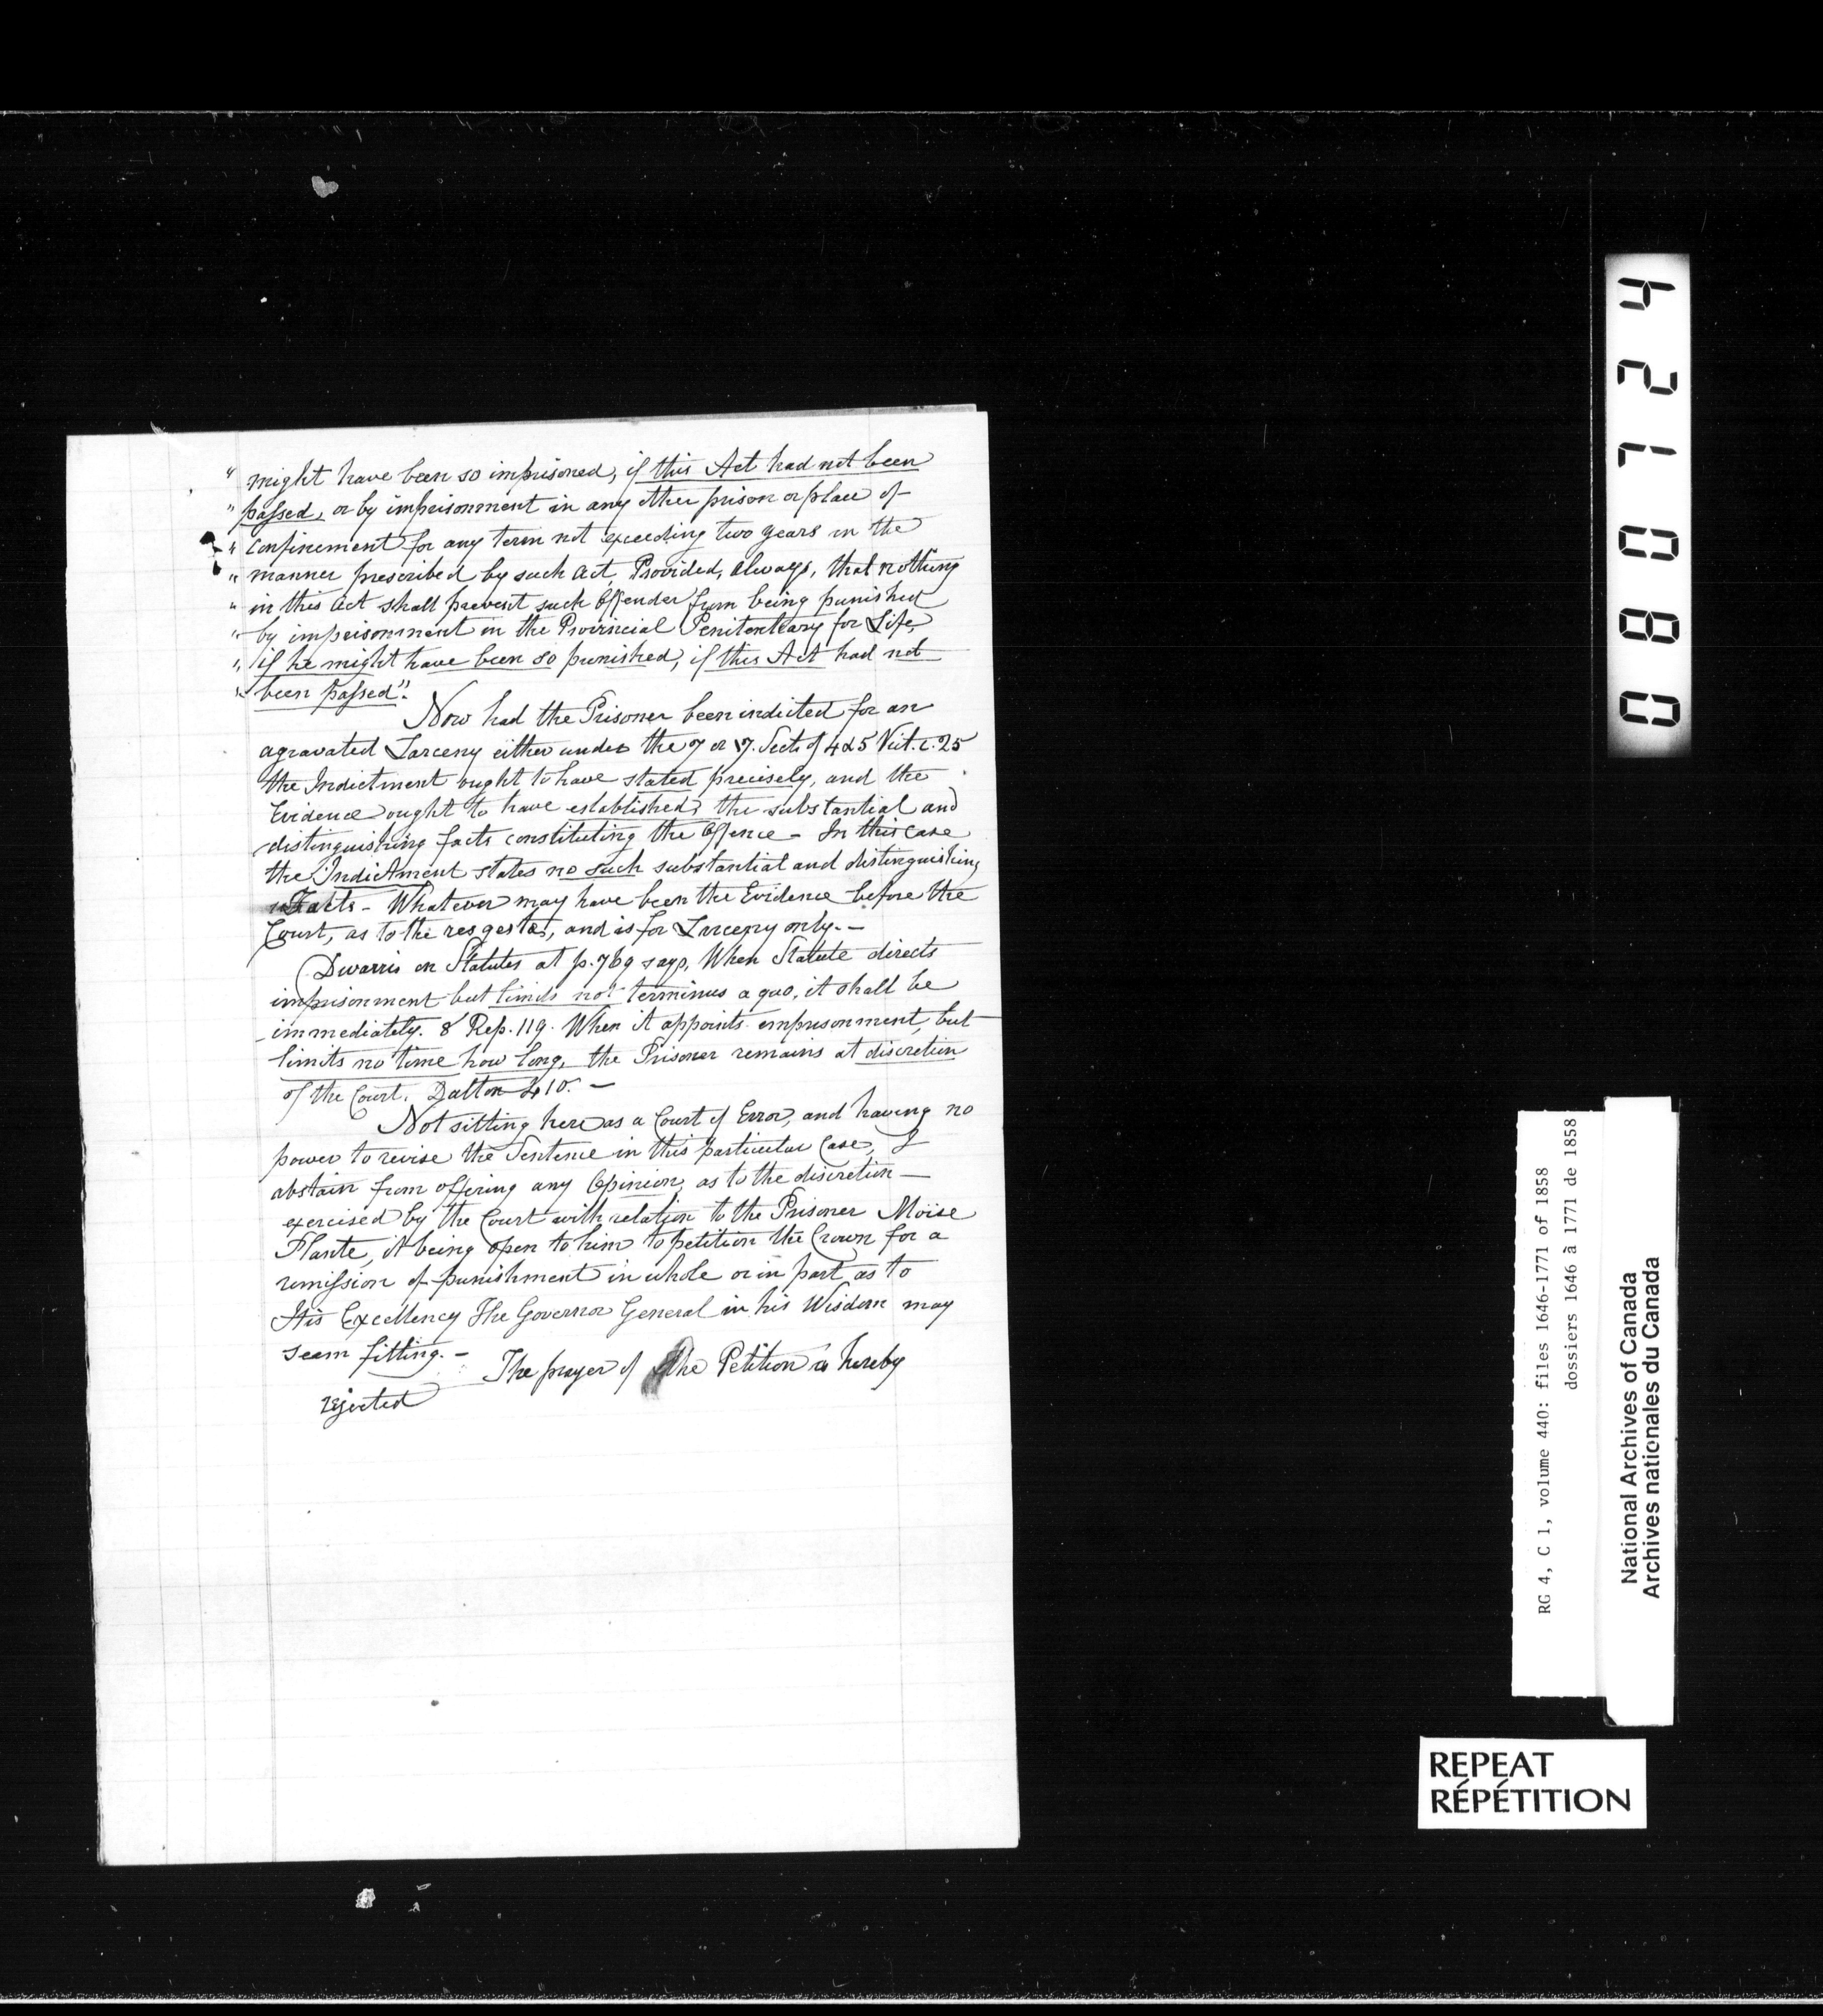 " might have been so imprisoned, if this Act had not been
" passed, or by imprisonment in any other prison or place of
" confinement for any term not exceeding two years in the
" manner prescribed by such Act, Provided, always, that nothing
" in this Act shall prevent such Offender from being punished
" by imprisonment in the Provincial Penitentiary for Life,
" if he might have been so punished, if this Act had not
" been passed".
Now had the Prisoner been indicted for an
agravated Larceny either under the 7 or 17. Sects of 4 & 5 Vict. c. 25
the Indictment ought to have stated precisely, and the
Evidence ought to have established, the substantial and
distinguishing facts constituting the Offence - In this case
the Indictment states no such substantial and distinguishing
Facts - Whatever may have been the Evidence before the
Court, as to the res gestæ, and is for Larceny only. -
Dwarris on Statutes at p. 769 says, When Statute directs
imprisonment but limits not terminus a quo, it shall be
immediately. 8 Rep. 119. When it appoints imprisonment, but
limits no time how long, the Prisoner remains at discretion
of the Court. Dalton 410. -
Not sitting here as a Court of Error, and having no
power to revise the Sentence in this particular Case, I
abstain from offering any Opinion, as to the discretion
exercised by the Court with relation to the Prisoner Moïse
Plante, it being open to him to petition the Crown for a
remission of punishment in whole or in part, as to
His Excellency The Governor General in his Wisdom may
seem fitting. -
The prayer of the Petition is hereby
rejected
080124
RG 4, C 1, volume 440: files 1646-1771 of 1858
dossiers 1646 à 1771 de 1858
National Archives of Canada
Archives nationales du Canada
REPEAT
RÉPÉTITION